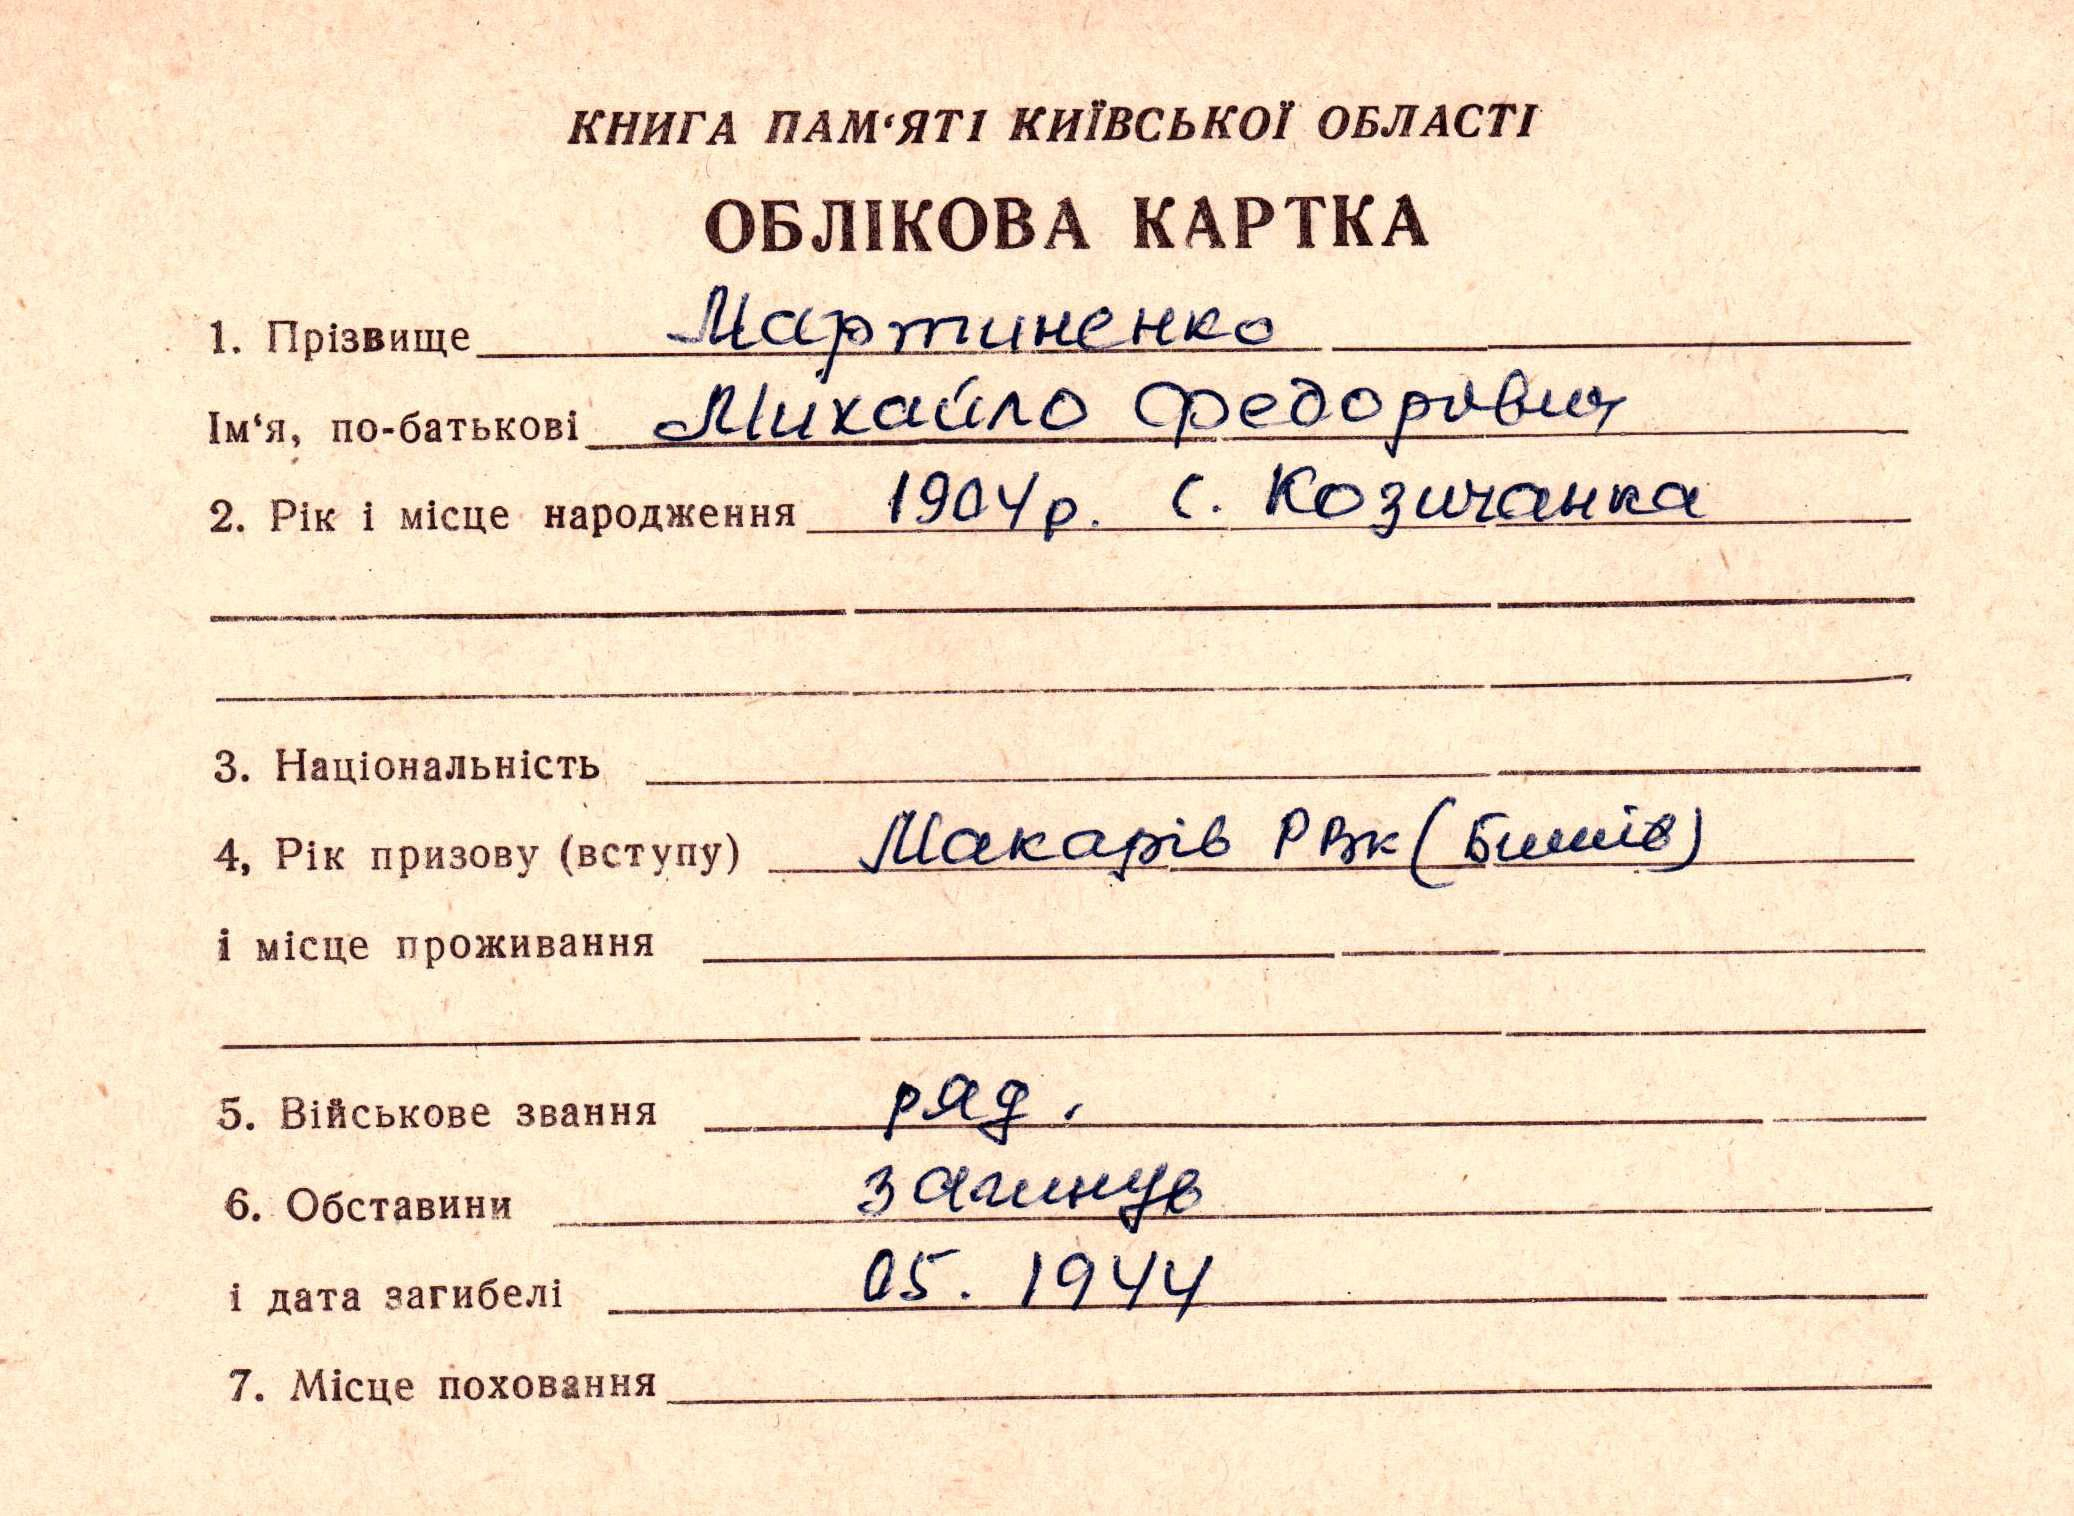 КНИГА ПАМ‘ЯТІ КИЇВСЬКОЇ ОБЛАСТІ
ОБЛІКОВА КАРТКА
1. Прізвище Мартиненко
Ім‘я, по-батькові Михайло Федорович
2. Рік і місце народження 1904 р. с. Козичанка
3. Національність
4, Рік призову (вступу) Макарів РВК (Бишів)
і місце проживання
5. Військове звання ряд.
6. Обставини загинув
і дата загибелі 05. 1944
7. Місце поховання